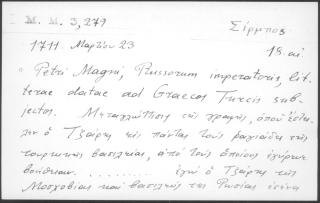 M. M. 3,279
Σίρμπος
1711 Μαρτίου 23
18. αι.
Petri Magni, Russorum imperatoris, lit-
terae datae ad Graecos Turcis sub-
jectos. Μεταγλώττισις της γραφής, οπού έστει-
λεν ο Τζάρης εις πάντας τους ραγιάδες της
τουρκικής βασιλείας, από τους οποίους εγύρευε
βοήθειαν. .......... εγώ ο Τζάρης της
Μοσχοβίας και βασιλεύς της Ρωσίας